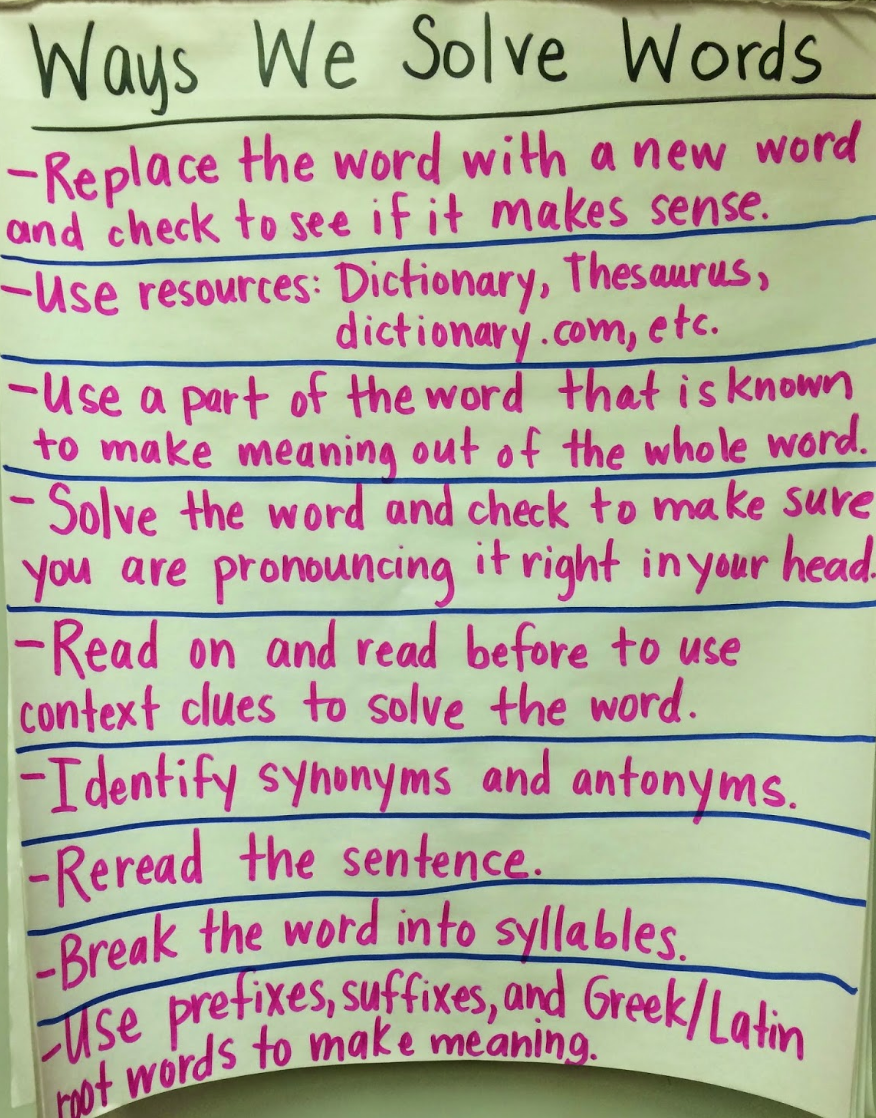 Ways We Solve Words
-Replace the word with a new word
and check to see if it makes sense.
-Use resources: Dictionary, Thesaurus,
dictionary.com, etc.
-Use a part of the word that is known
to make meaning out of the whole word.
-Solve the word and check to make sure
you are pronouncing it right in your head.
-Read on and read before to use
context clues to solve the word.
-Identify synonyms and antonyms.
-Reread the sentence.
-Break the word into syllables.
-Use prefixes, suffixes, and Greek/Latin
root words to make meaning.